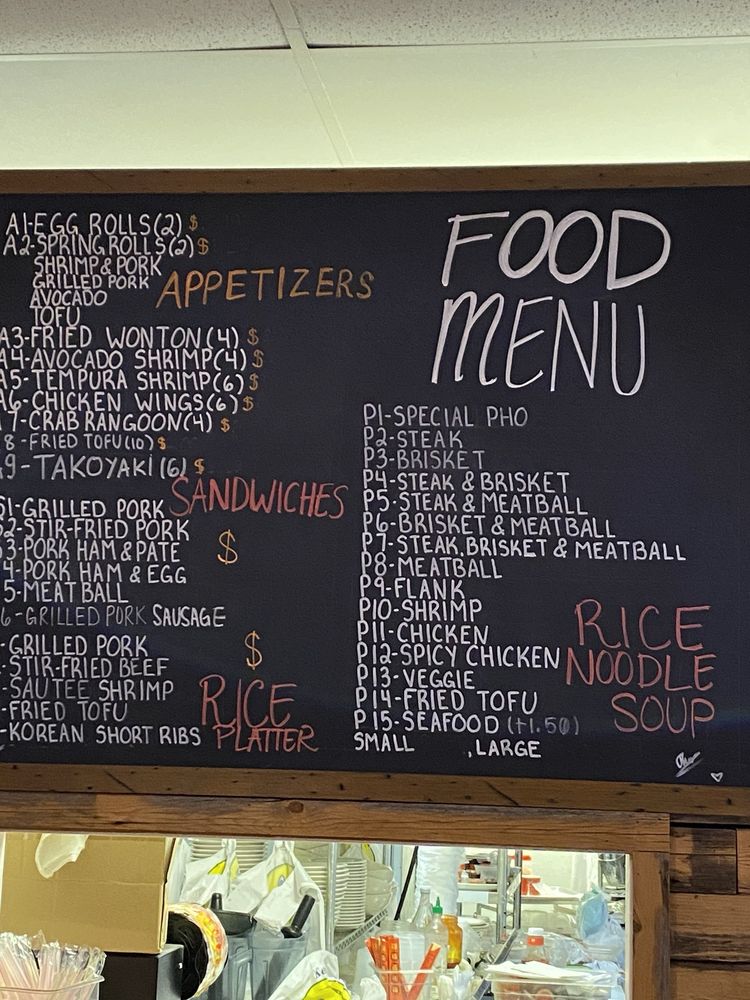 A1-EGG ROLLS(2) $
A2-SPRING ROLLS(2) $
SHRIMP & PORK
GRILLED PORK
AVOCADO
TOFU
APPETIZERS
A3-FRIED WONTON(4) $
A4-AVOCADO SHRIMP(4) $
A5-TEMPURA SHRIMP(6) $
A6-CHICKEN WINGS(6) $
A7-CRAB RANGOON(4) $
8-FRIED TOFU(10) $
A9-TAKOYAKI(6) $
SANDWICHES
S1-GRILLED PORK
S2-STIR-FRIED PORK
3-PORK HAM & PATE
$
4-PORK HAM & EGG
5-MEAT BALL
6-GRILLED PORK SAUSAGE
-GRILLED PORK
$
-STIR-FRIED BEEF
-SAUTEE SHRIMP
-FRIED TOFU
-KOREAN SHORT RIBS
RICE
PLATTER
FOOD
MENU
P1-SPECIAL PHO
P2-STEAK
P3-BRISKET
P4-STEAK & BRISKET
P5-STEAK & MEATBALL
P6-BRISKET & MEATBALL
P7-STEAK, BRISKET & MEATBALL
P8-MEATBALL
P9-FLANK
P10-SHRIMP
P11-CHICKEN
P12-SPICY CHICKEN
P13-VEGGIE
P14-FRIED TOFU
P15-SEAFOOD (+1.50)
SMALL , LARGE
RICE
NOODLE
SOUP